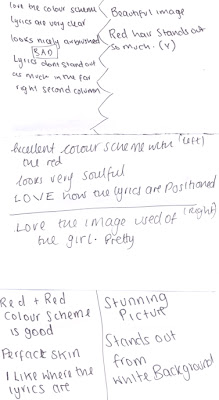 love the colour scheme
lyrics are very clear
looks nicely
BAD
Lyrics dont stand out
as much in the far
right second column
Beautiful image
Red hair stands out
so much. (Y)
Excellent colour scheme with (left)
the red
looks very soulful
LOVE how the lyrics are Positioned
Love the image used of (right)
the girl. Pretty
Red + Red
Colour scheme
is good
Perfack skin
I like where the
lyrics are
Stunning
Picture
Stands out
from
white Background